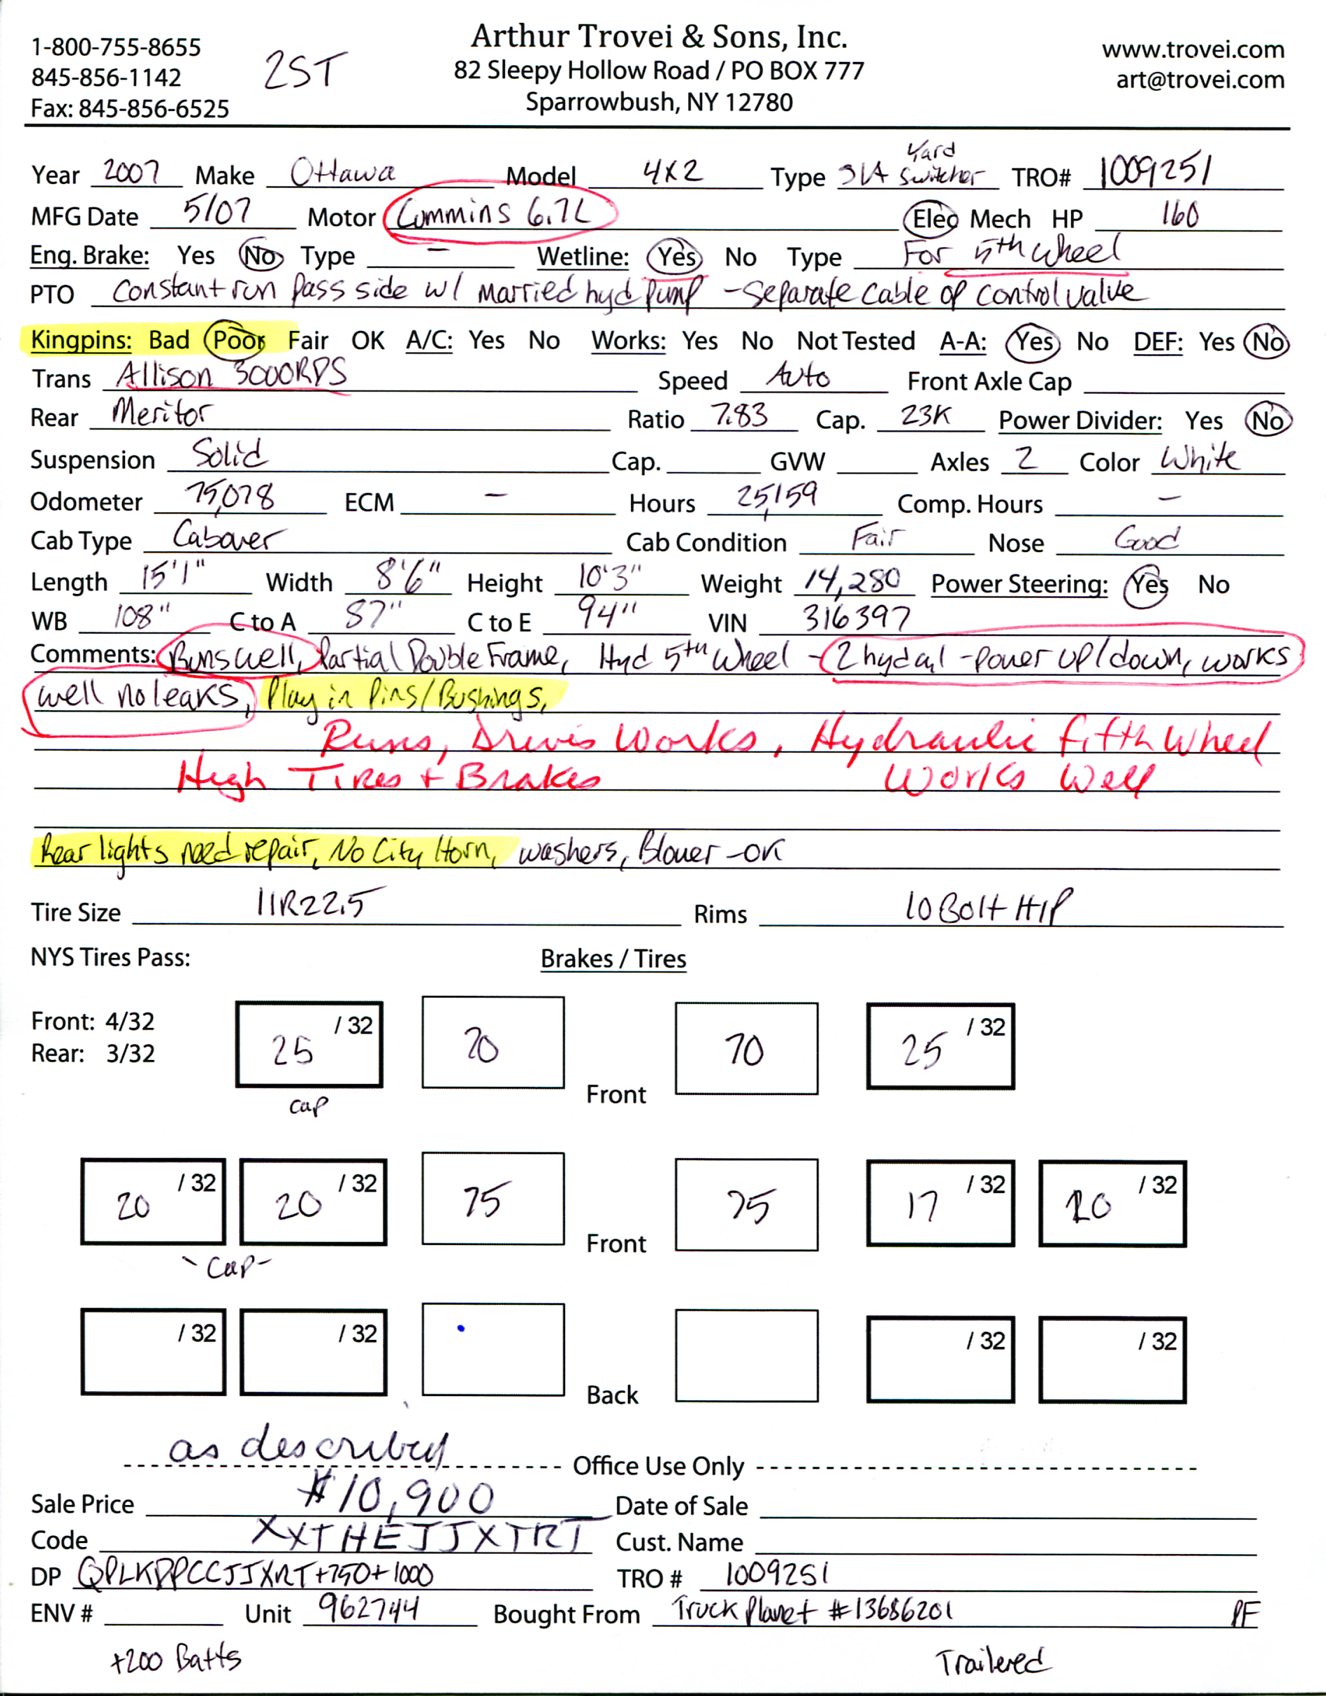 Arthur Trovei & Sons, Inc.
1-800-755-8655 2ST 82 Sleepy Hollow Road / PO BOX 777 www.trovei.com
845-856-1142 Sparrowbush, NY 12780 art@trovei.com
Fax: 845-856-6525
Year 2007 Make Ottawa Model 4X2 Type S/A Yard Switcher TRO# 1009251
MFG Date 5/07 Motor Cummins 6.7L Elec Mech HP 160
Eng. Brake: Yes No Type — Wetline: Yes No Type For 5th Wheel
PTO Constant run pass side w/ married hyd pump - Separate cable op control valve
Kingpins: Bad Poor Fair OK A/C: Yes No Works: Yes No Not Tested A-A: Yes No DEF: Yes No
Trans Allison 3000RDS Speed Auto Front Axle Cap
Rear Meritor Ratio 7.83 Cap. 23K Power Divider: Yes No
Suspension Solid Cap. GVW Axles 2 Color White
Odometer 75,078 ECM — Hours 25,159 Comp. Hours —
Cab Type Cabover Cab Condition Fair Nose Good
Length 15'1" Width 8'6" Height 10'3" Weight 14,280 Power Steering: Yes No
WB 108" C to A 87" C to E 94" VIN 316397
Comments: Runs well, Partial Double Frame, Hyd 5th Wheel - 2 hyd cyl - power up/down, works
well no leaks, Play in Pins/Bushings,
Runs, Drives Works, Hydraulic fifth Wheel
High Tires + Brakes Works Well
Rear lights need repair, No City Horn, washers, Blower - OK
Tire Size 11R22.5 Rims 10 Bolt H/P
NYS Tires Pass: Brakes / Tires
Front: 4/32 25 /32 70 70 25 /32
Rear: 3/32 Front
Cap
20 /32 20 /32 75 75 17 /32 20 /32
Front
- Cap -
/32 /32 /32 /32
Back
as described Office Use Only
Sale Price $10,900 Date of Sale
Code XXTHEJJXTRT Cust. Name
DP QPLKPPCCJJXRT+750+1000 TRO # 1009251
ENV # Unit 962744 Bought From Truck Planet #13686201 PF
+200 Batts Trailered